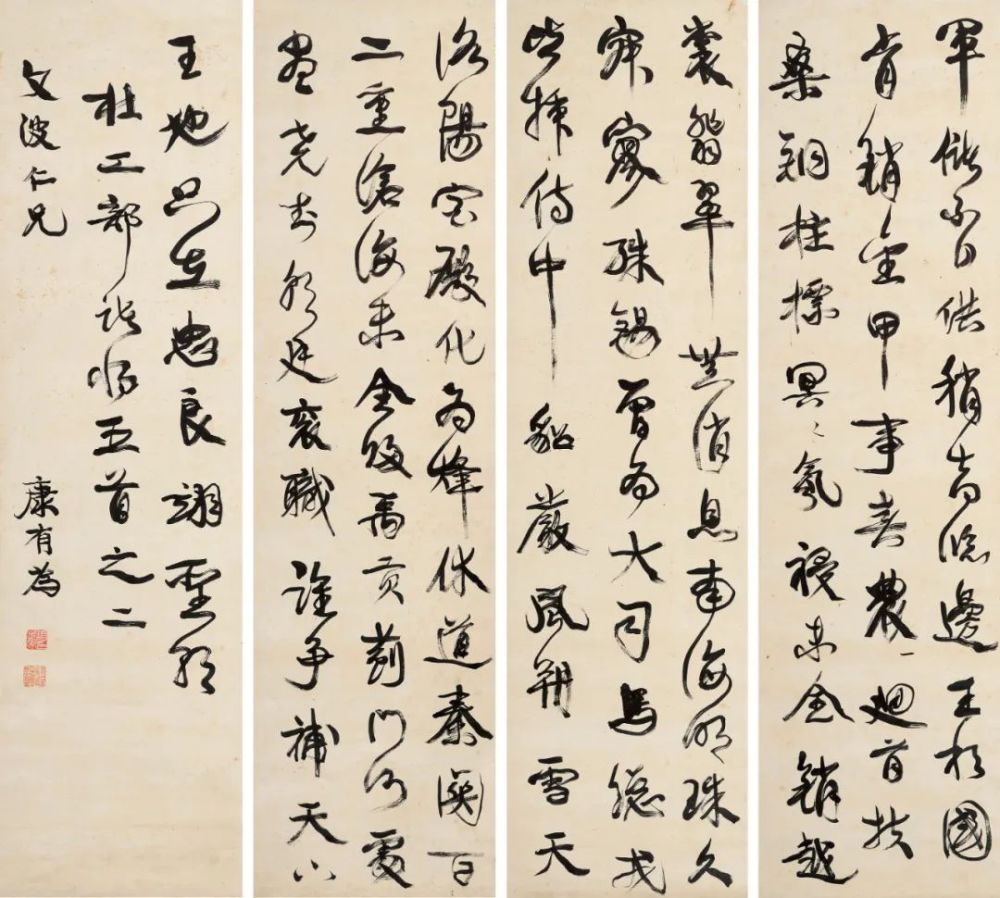 軍儲不自供稍喜臨邊王相國
肯銷金甲事春農迴首扶
桑銅柱標冥〻氛祲未全銷越
裳翡翠無消息南海明珠久
寂寥殊錫曾為大司馬總戎
皆插侍中貂嚴風朔雪天
洛陽宮殿化為烽休道秦關百
二重滄海未全歸禹貢薊門何處
盡堯封朝廷袞職誰爭補天下
王地只在忠良翊聖朝
杜工部諸將五首之二
文波仁兄
康有為